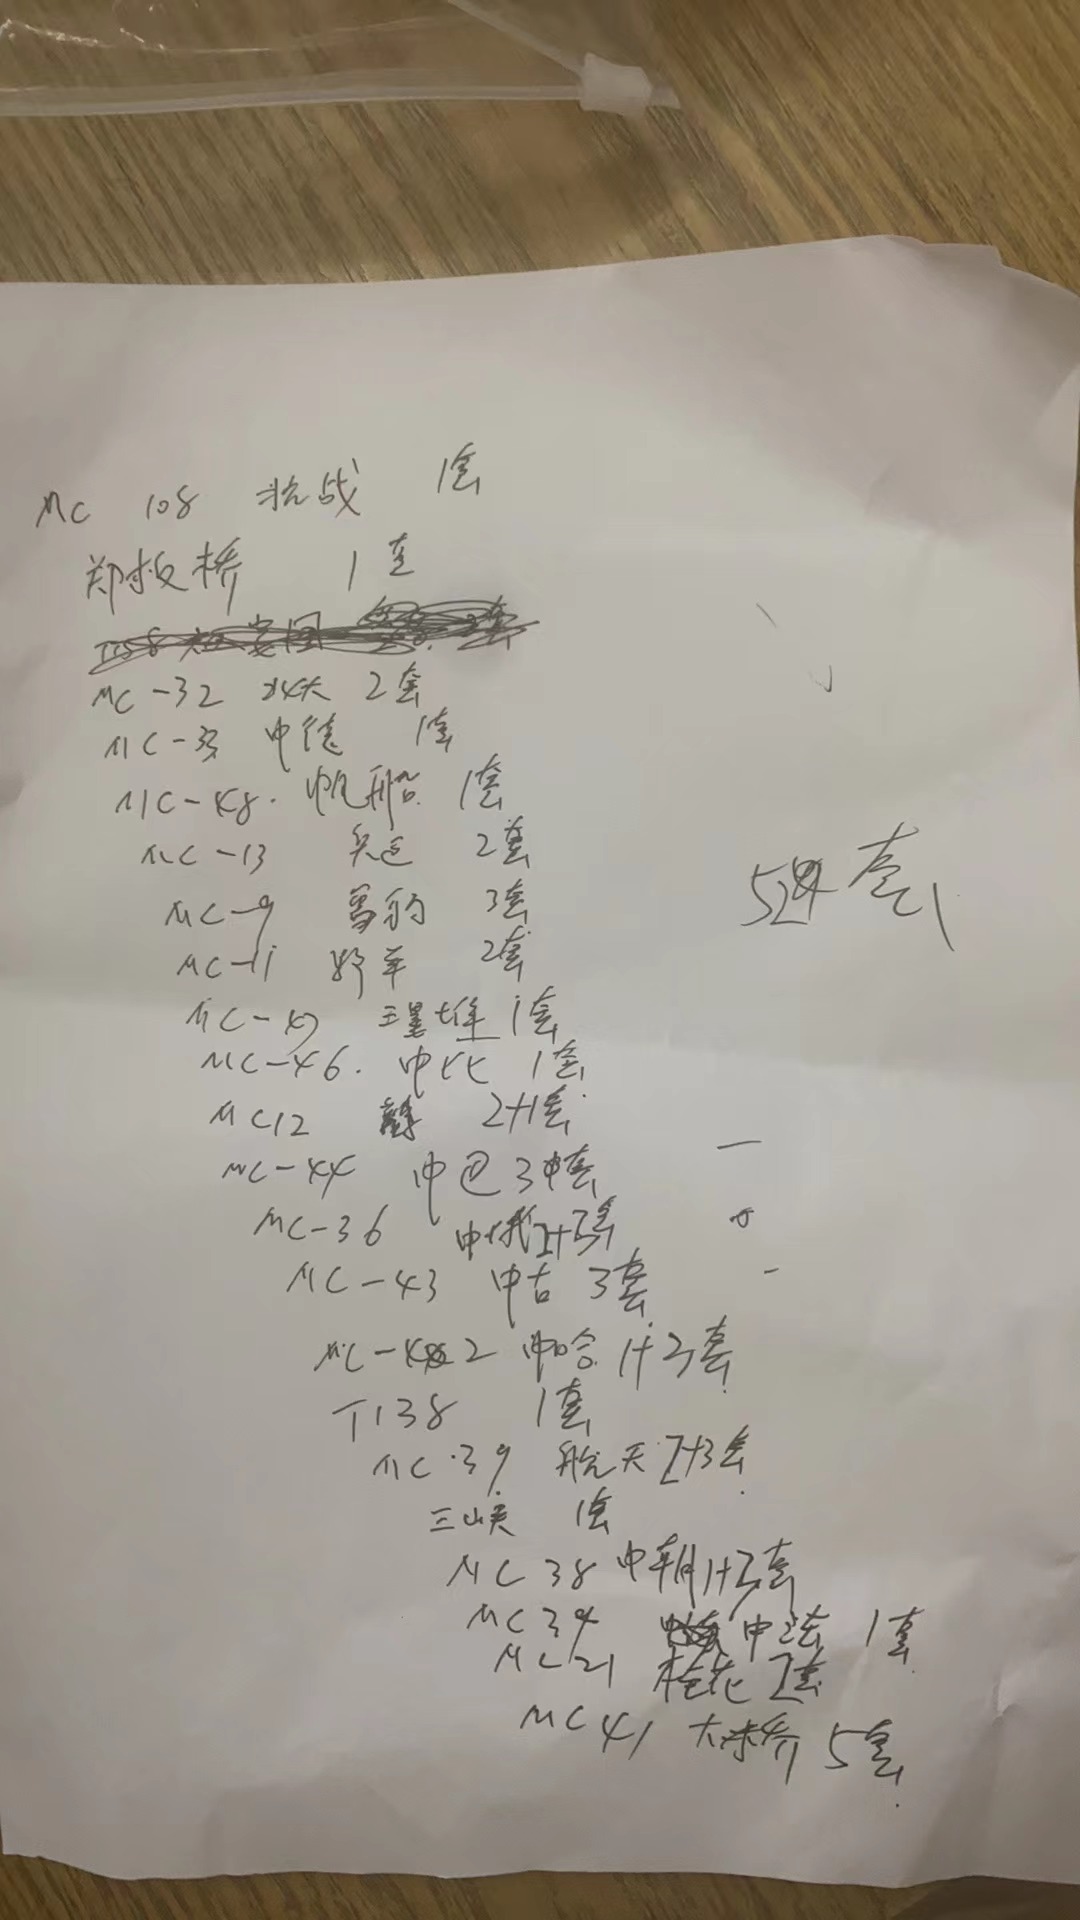 MC 108 抗战 1套
郑板桥 1套
MC-32 2套
MC-33 中德 1套
MC-48. 帆船 1套
MC-13 奥运 2套
MC-9 雪豹 3套
MC-11 轿车 2套
MC-47 三星堆 1套
MC-46. 中比 1套
MC12 2+1套
MC-44 中巴 3套
MC-36 中俄 2+3套
MC-43 中古 3套
MC-42 中哈 1+3套
T138 1套
MC.39 航天 2+3套
三峡 1套
MC 38 中朝 1+3套
MC34 中法 1套
MC21 桂花 2套
MC41 大桥 5套
套